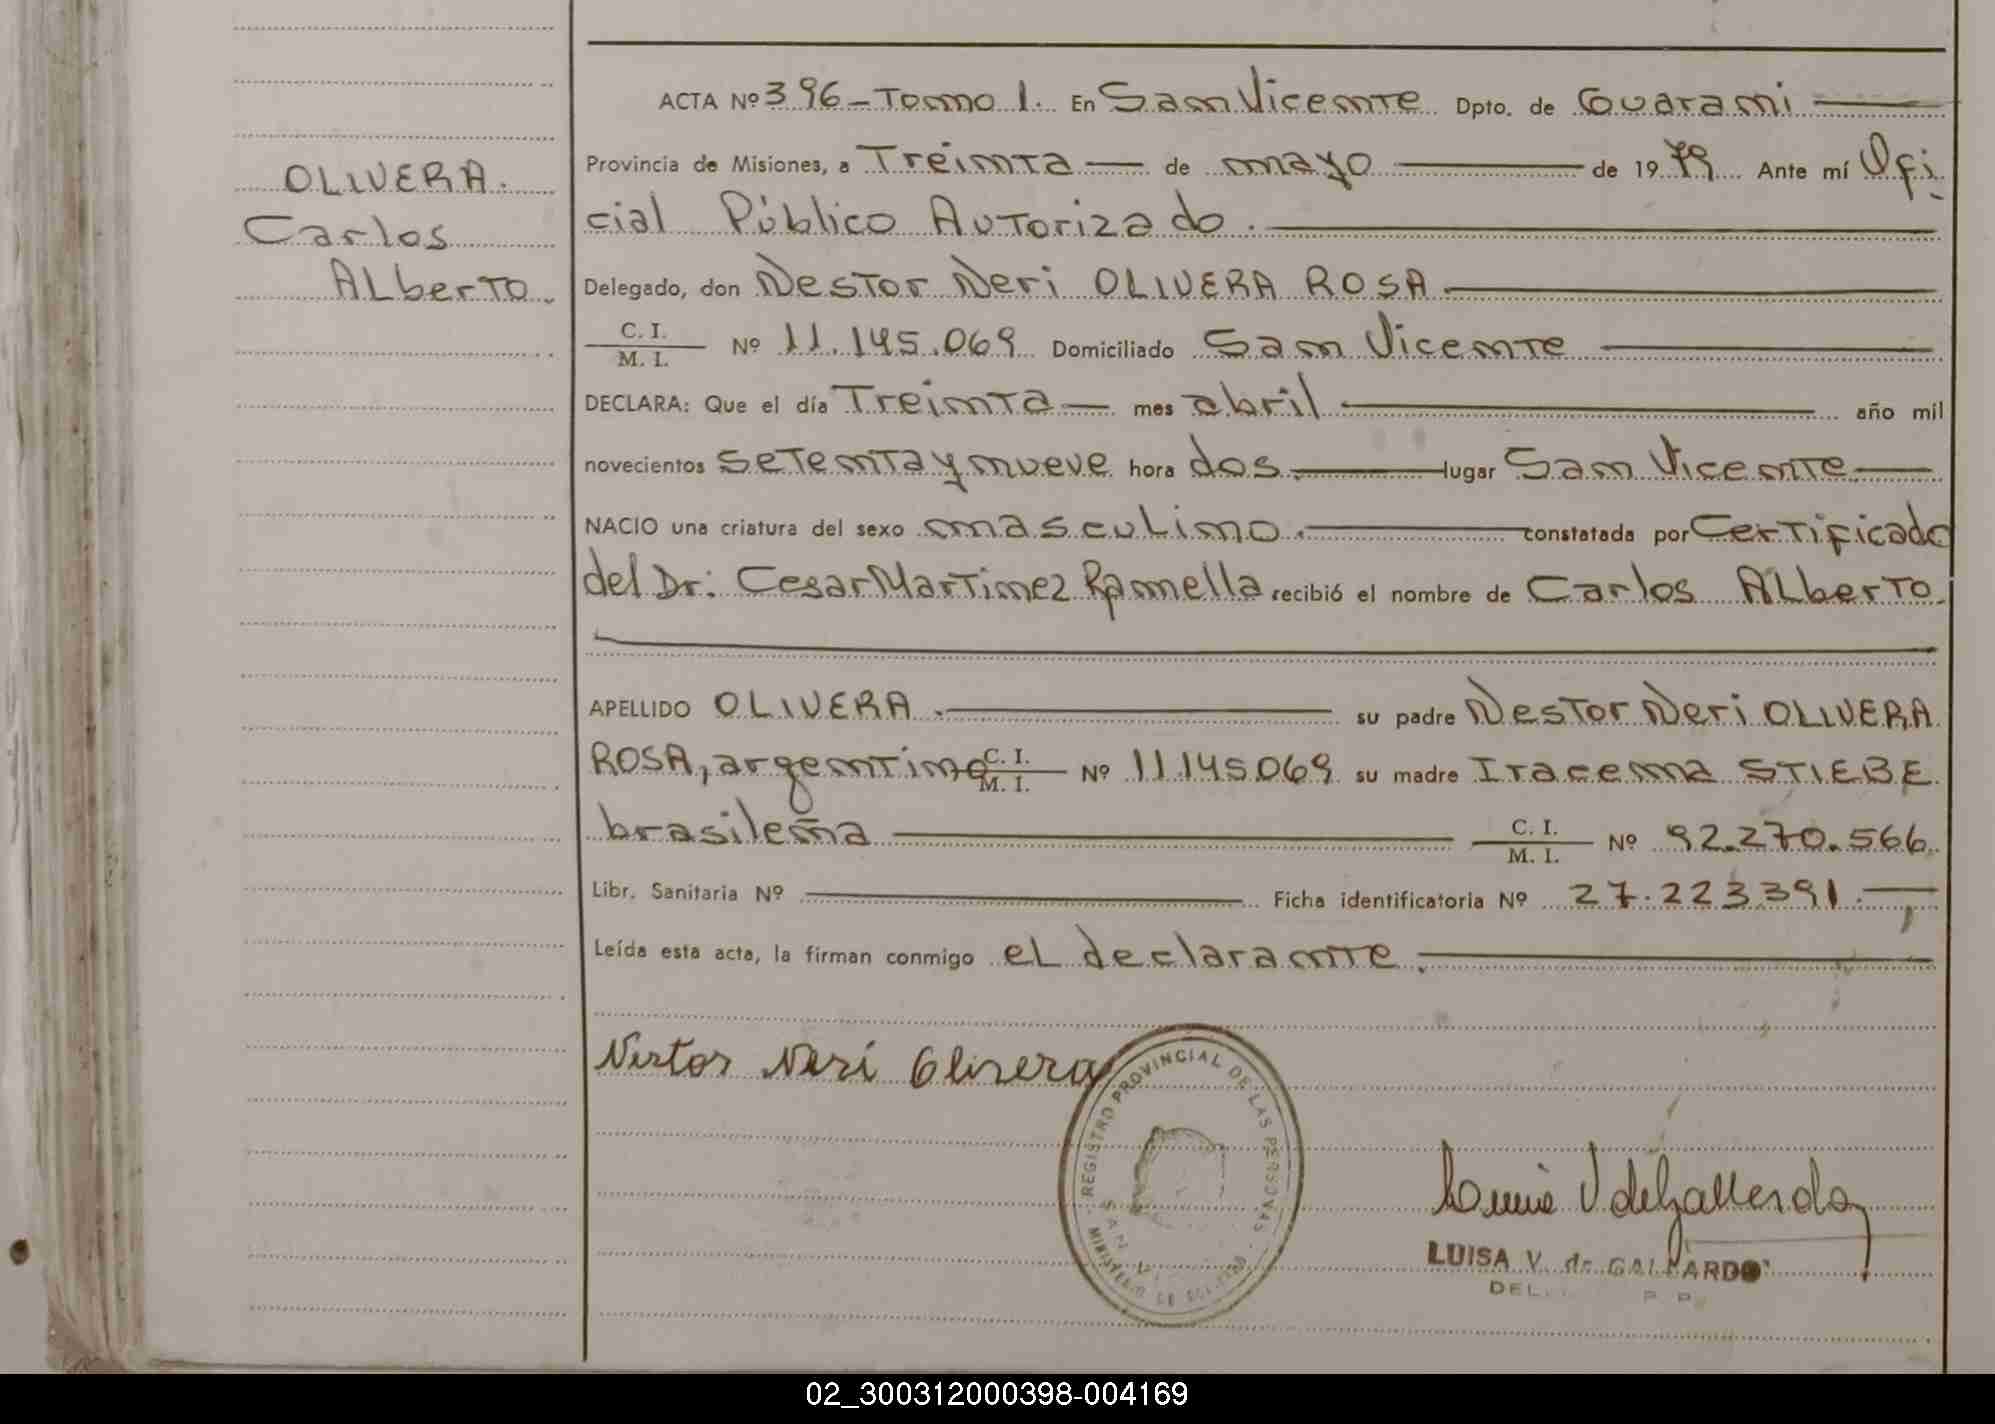 OLIVERA.
Carlos
ALberto.
ACTA Nº 396 - Tomo I. En San Vicente Dpto. de Guarani
Provincia de Misiones, a Treinta de mayo de 1979 Ante mí Ofi
cial Público Autorizado.
Delegado, don Nestor Neri OLIVERA ROSA
C. I.
M. I. Nº 11.145.069 Domiciliado San Vicente
DECLARA: Que el día Treinta mes abril año mil
novecientos setenta y nueve hora dos. lugar San Vicente
NACIO una criatura del sexo masculino. constatada por Certificado
del Dr: Cesar Martinez Ramella recibió el nombre de Carlos ALberto.
APELLIDO OLIVERA. su padre Nestor Neri OLIVERA
ROSA, argentino C. I. M. I. Nº 11.145.069 su madre Iracema STIEBE
brasileña C. I. M. I. Nº 92.270.566
Libr. Sanitaria Nº Ficha identificatoria Nº 27.223.391.
Leída esta acta, la firman conmigo eL declarante.
Nestor Neri Olivera
REGISTRO PROVINCIAL DE LAS PERSONAS
MINISTERIO DE
SAN V
Luisa V de Gallardo
LUISA V. de GALLARDO
DEL.
02_300312000398-004169